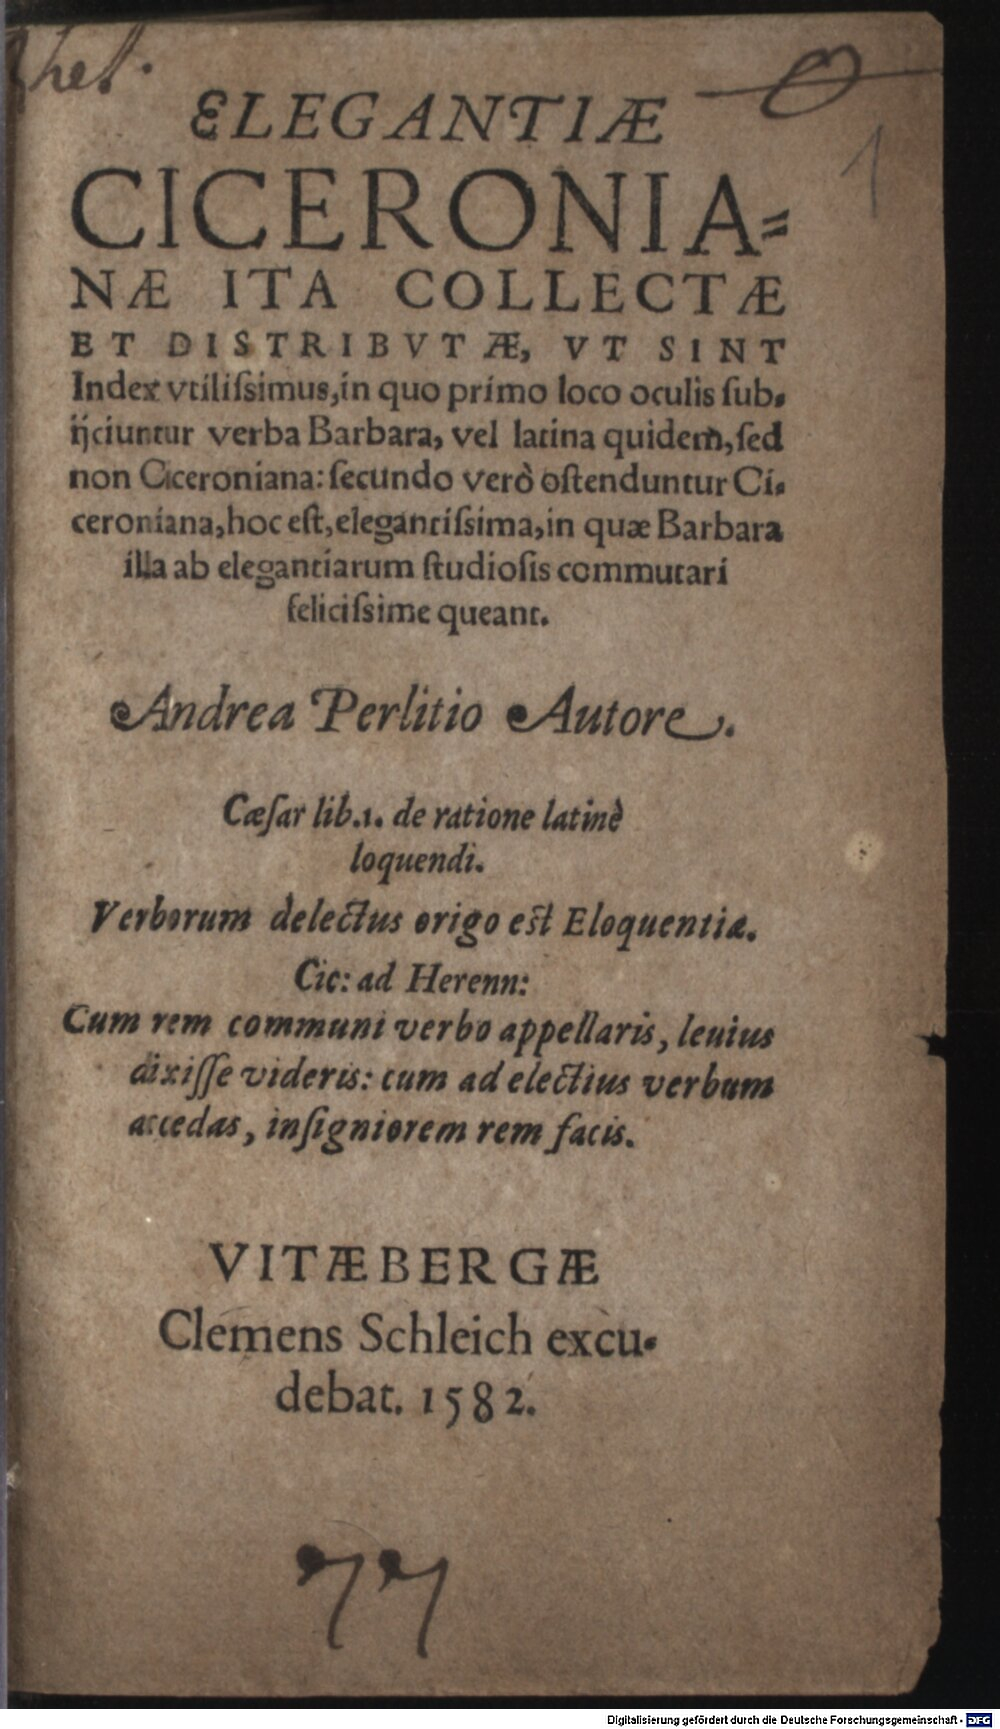 Rhet.
1
ELEGANTIÆ
CICERONIA=
NÆ ITA COLLECTÆ
ET DISTRIBVTÆ, VT SINT
Index vtiliſsimus, in quo primo loco oculis ſub-
ijciuntur verba Barbara, vel latina quidem̃, ſed
non Ciceroniana: ſecundo verò oſtenduntur Ci-
ceroniana, hoc eſt, elegantiſsima, in quæ Barbara
illa ab elegantiarum ſtudioſis commutari
feliciſsime queant.
Andrea Perlitio Autore.
Cæſar lib. 1. de ratione latinè
loquendi.
Verborum delectus origo eſt Eloquentiæ.
Cic: ad Herenn:
Cum rem communi verbo appellaris, leuius
dixiſſe videris: cum ad electius verbum
accedas, inſigniorem rem facis.
VITÆBERGÆ
Clemens Schleich excu-
debat. 1582.
77
Digitalisierung gefördert durch die Deutsche Forschungsgemeinschaft - DFG